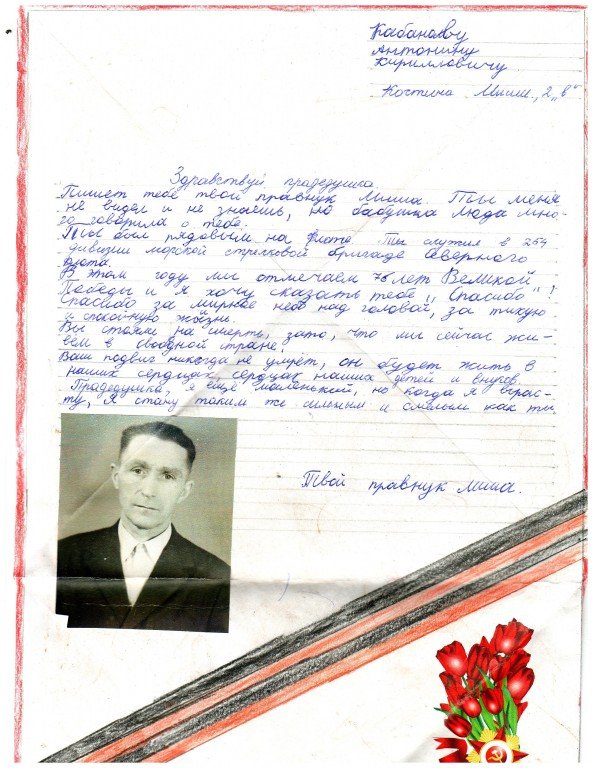 Кабанову
Антонину
Кирилловичу
Костина Миши, 2 „в"
Здравствуй прадедушка.
Пишет тебе твой правнук Миша. Ты меня
не видел и не знаешь, но бабушка Люда мно-
го говорила о тебе.
Ты был рядовым на Флоте. Ты служил в 254
дивизии морской стрелковой бригаде Северного
флота.
В этом году мы отмечаем 76 лет Великой
Победы и я хочу сказать тебе „Спасибо"!
Спасибо за мирное небо над головой, за тихую
и спокойную жизнь.
Вы стояли на смерть, зато, что мы сейчас жи-
вем в свободной стране!
Ваш подвиг никогда не умрет, он будет жить в
наших сердцах, сердцах наших детей и внуков.
Прадедушка, я еще маленький, но когда я вырас-
ту, я стану таким же сильным и смелым как ты.
Твой правнук Миша.